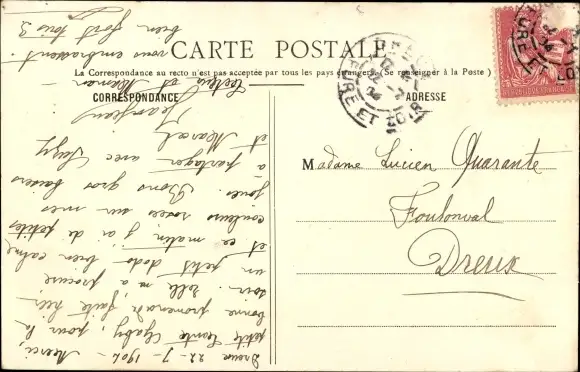 CARTE POSTALE
La Correspondance au recto n'est pas acceptée par tous les pays étrangers. (Se renseigner à la Poste)
CORRESPONDANCE
ADRESSE
Madame Lucien Quarante
Foulonval
Dreux
Dreux 22-7-1904 - Merci,
petite tante Gaby, pour la
bonne promenade faite hier
soir. Elle m'a procuré
un petit dodo bien calme
et ce matin j'ai de petites
couleurs roses sur mes
joues. Bons gros baisers
à partager avec Suzy
et Marcel
Jean
et Maman
vous embrassent
bien fort tous 3
EURE ET LOIR
EURE
RÉPUBLIQUE FRANÇAISE